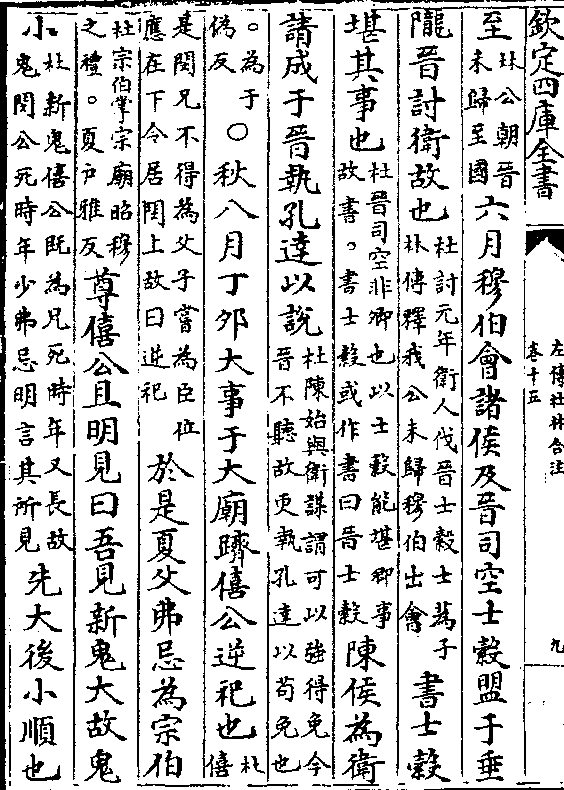 欽定四庫全書
左傳杜林合注
卷十五
九
至林公朝晉未歸至國六月穆伯會諸侯及晉司空士縠盟于垂
隴晉討衛故也杜討元年衛人伐晉士縠士蒍子林傳釋我公未歸穆伯出會書士縠
堪其事也杜晉司空非卿也以士縠能堪卿事故書。書士縠或作書曰晉士縠陳侯為衛
請成于晉執孔達以說杜陳始與衛謀謂可以強得免今晉不聽故更執孔達以苟免也
。為于偽反〇秋八月丁夘大事于大廟躋僖公逆祀也杜僖
是閔兄不得為父子嘗為臣位應在下令居閔上故曰逆祀於是夏父弗忌為宗伯
杜宗伯掌宗廟昭穆之禮。夏户雅反尊僖公且明見曰吾見新鬼大故鬼
小杜新鬼僖公既為兄死時年又長故鬼閔公死時年少弗忌明言其所見先大後小順也